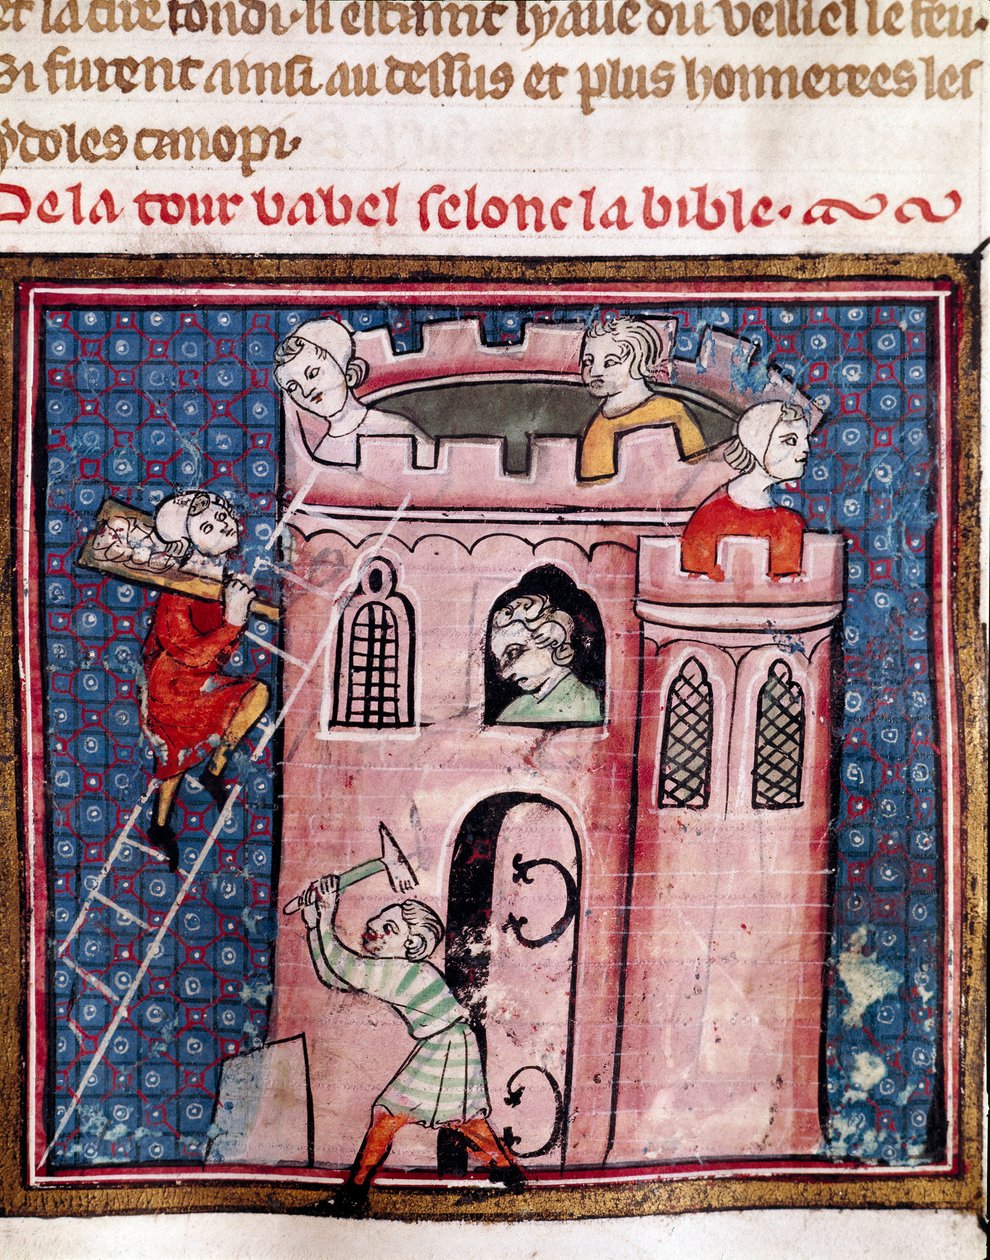 et la cire fondi. si estaint lyaue du veissiel le feu.
Si furent ainsi au dessus et plus honnerees les
ydoles canopi.
De la tour babel selonc la bible.